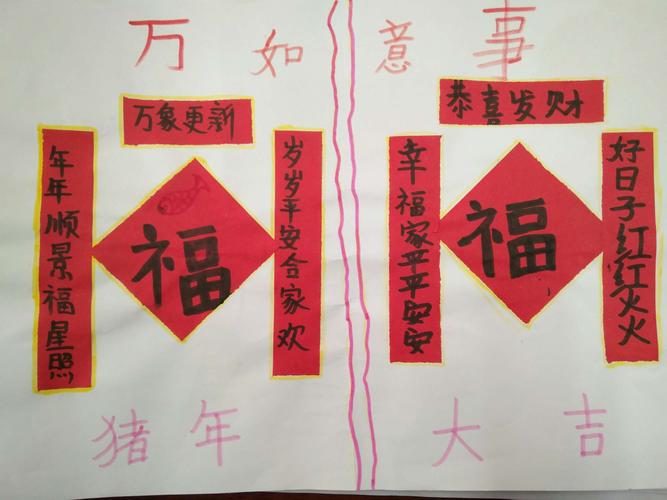 万如意事
万象更新
年年顺景福星照
福
岁岁平安合家欢
恭喜发财
幸福家平平安安
福
好日子红红火火
猪年大吉